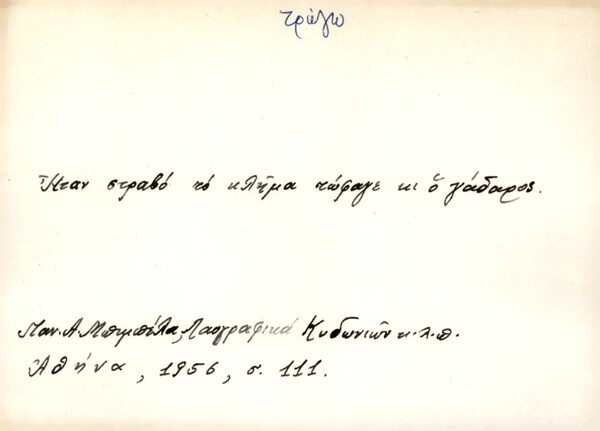 τρώγω
Ἦταν στραβό τό κλῆμα τὤφαγε κι ὁ γάδαρος.
Παν. Α. Μπιμπέλα, Λαογραφικά Κυδωνιῶν κ.λ.π.
Ἀθήνα, 1956, σ. 111.